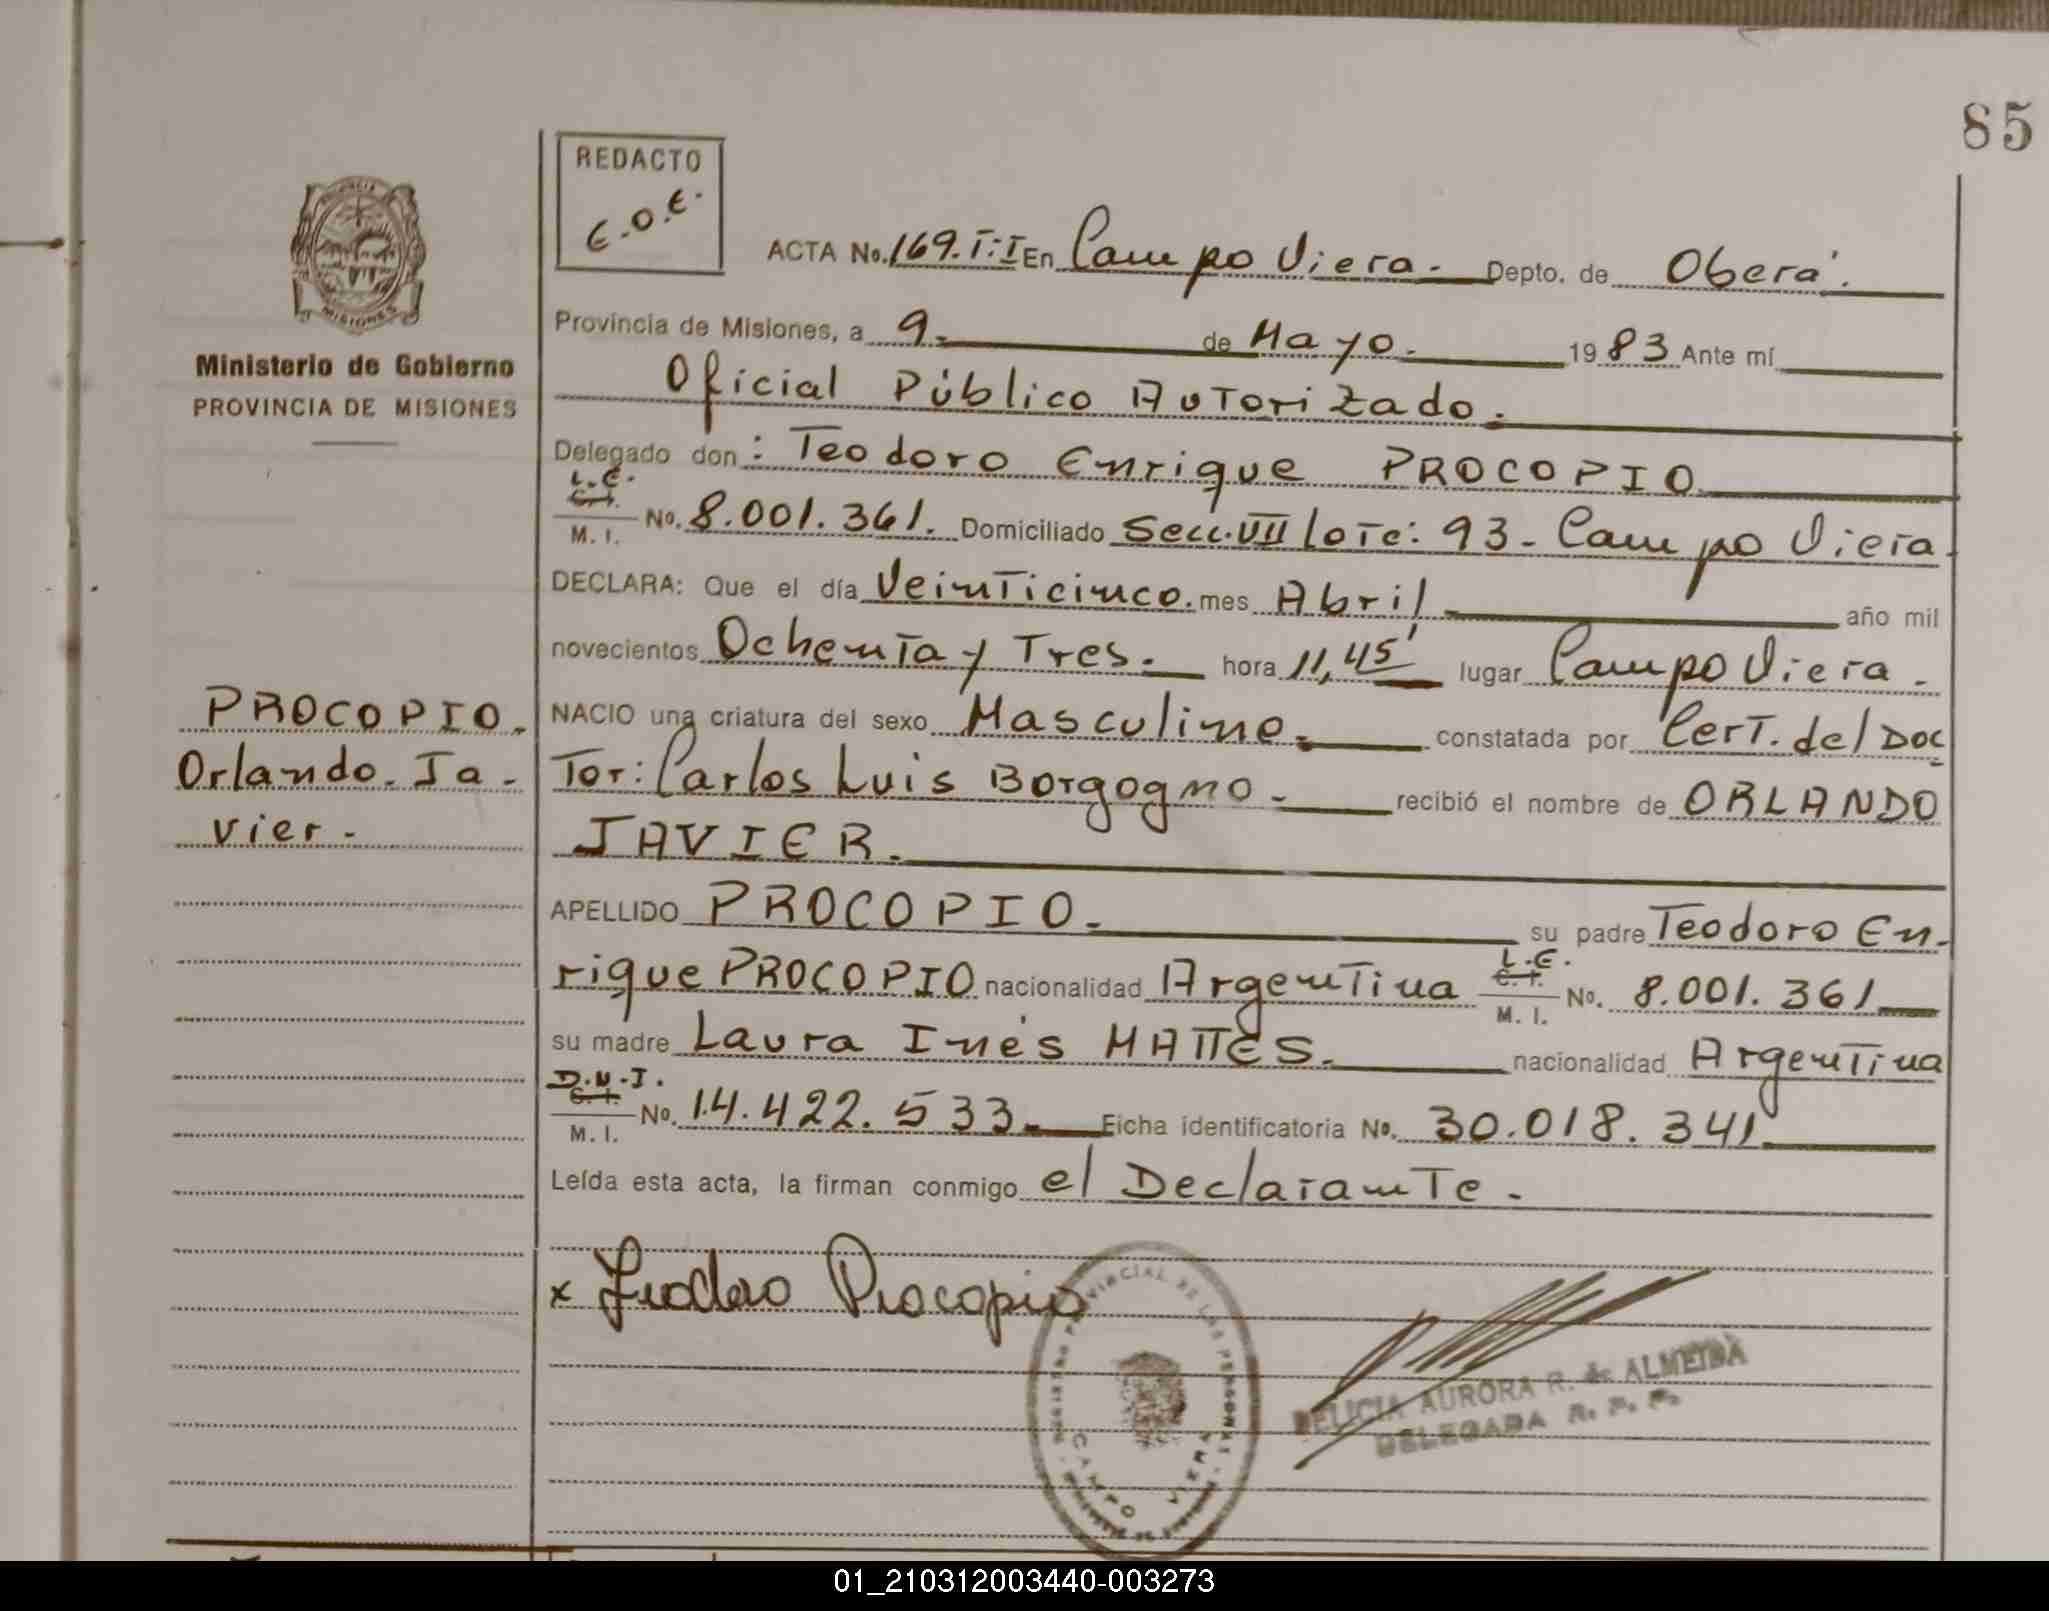 85
REDACTO
E.O.E.
MISIONES
Ministerio de Gobierno
PROVINCIA DE MISIONES
ACTA No. 169.T:I En Campo Viera.- Depto. de Oberá.
Provincia de Misiones, a 9. de Mayo. 1983 Ante mí
Oficial Público Autorizado.
Delegado don: Teodoro Enrique PROCOPIO
L.E.
C. I.
M. I. No. 8.001.361. Domiciliado Secc.VII lote: 93- Campo Viera.
DECLARA: Que el día Veinticinco. mes Abril año mil
novecientos Ochenta y Tres.- hora 11,45' lugar Campo Viera.-
NACIO una criatura del sexo Masculino. constatada por Cert. del Doc
tor: Carlos Luis Borgogno.- recibió el nombre de ORLANDO
JAVIER.
PROCOPIO.
Orlando. Ja-
vier.-
APELLIDO PROCOPIO.- su padre Teodoro En-
rique PROCOPIO nacionalidad Argentina L.E. C. I. M. I. No. 8.001.361
su madre Laura Inés MATTES. nacionalidad Argentina
D.N.I.
C. I.
M. I. No. 14.422.533. Ficha identificatoria No. 30.018.341
Leída esta acta, la firman conmigo el Declarante.-
x Teodoro Procopio
REGISTRO PROVINCIAL DE LAS PERSONAS
CAMPO VIERA
DELICIA AURORA R. de ALMEIDA
DELEGADA R. P. P.
01_210312003440-003273